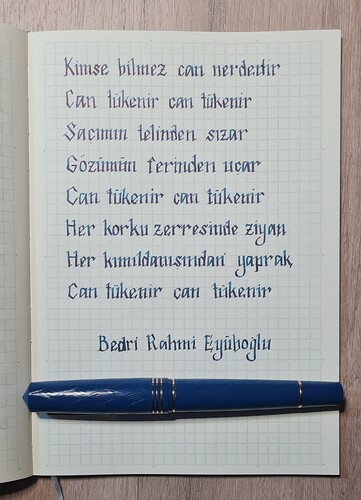 Kimse bilmez can nerdedir
Can tükenir can tükenir
Saçımın telinden sızar
Gözümün ferinden uçar
Can tükenir can tükenir
Her korku zerresinde ziyan
Her kımıldanışından yaprak
Can tükenir can tükenir
Bedri Rahmi Eyüboğlu